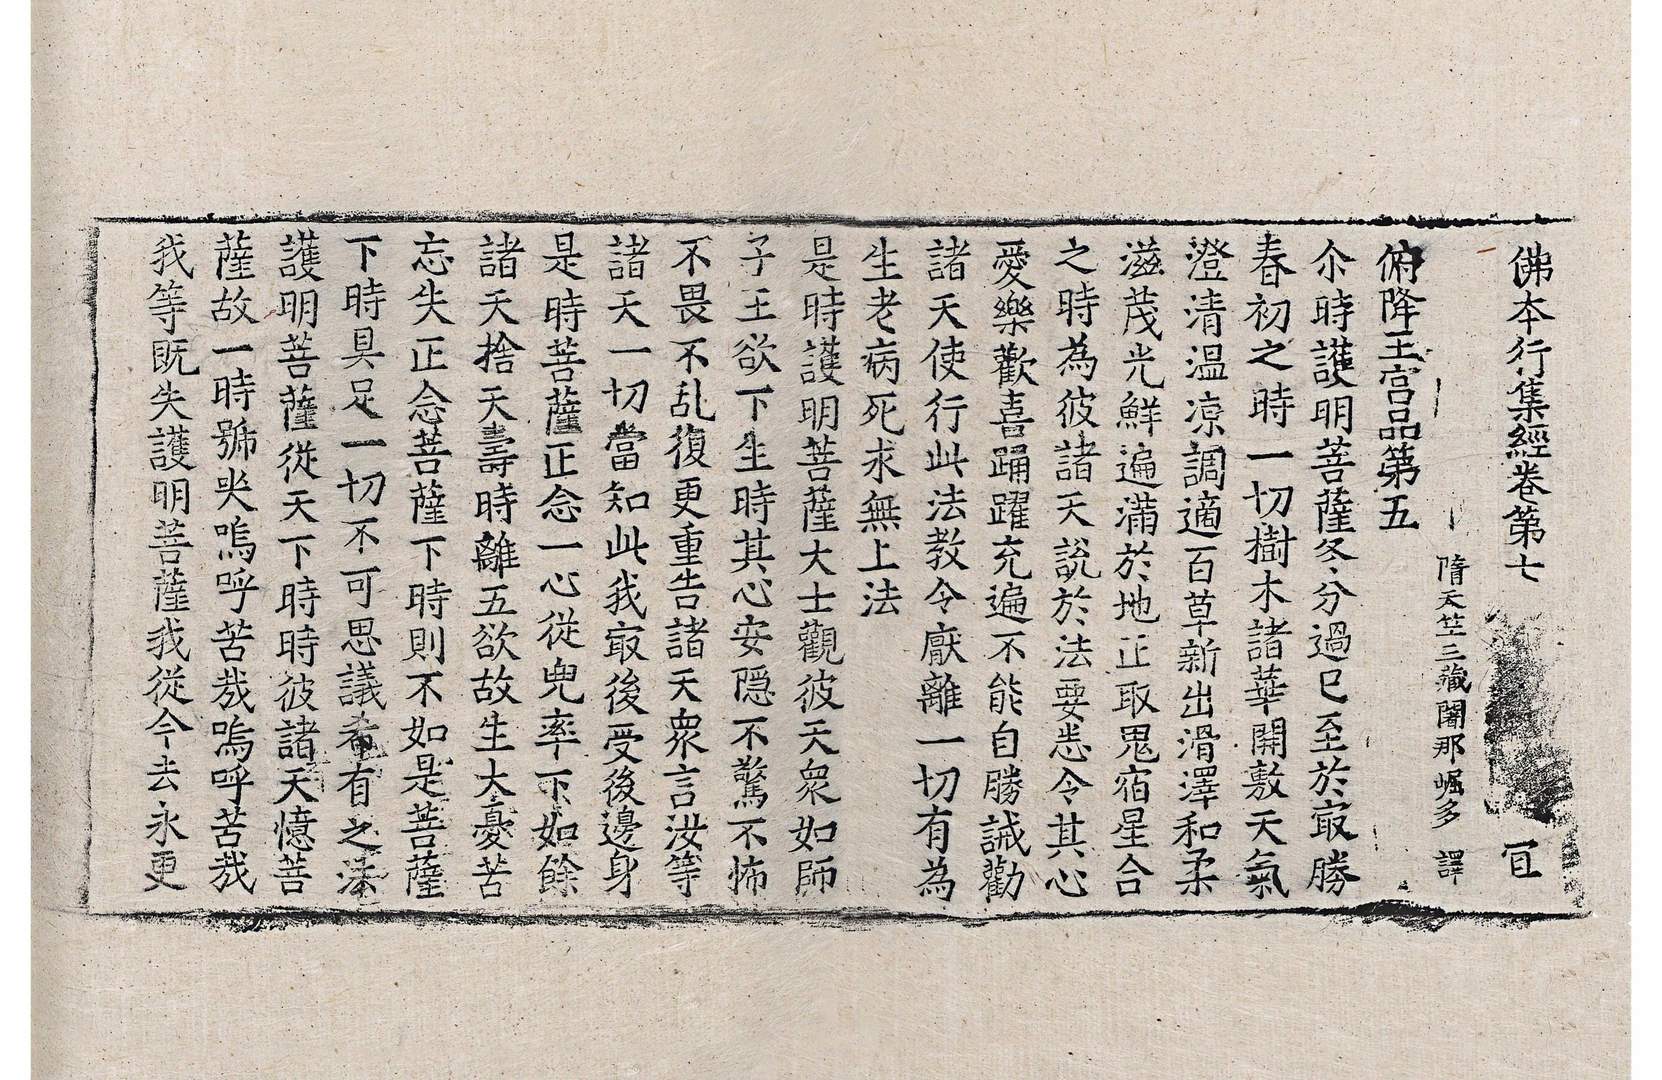 佛本行集經卷第七 冝
隋天竺三藏闍那崛多 譯
俯降王宮品第五
尒時護明菩薩冬分過已至於㝡勝
春初之時一切樹木諸華開敷天氣
澄清溫涼調適百草新出滑澤和柔
滋茂光鮮遍滿於地正取鬼宿星合
之時為彼諸天說於法要悉令其心
愛樂歡喜踊躍充遍不能自勝誡勸
諸天使行此法教令厭離一切有為
生老病死求無上法
是時護明菩薩大士觀彼天衆如師
子王欲下生時其心安隱不驚不怖
不畏不乱復更重告諸天衆言汝等
諸天一切當知此我㝡後受後邊身
是時菩薩正念一心從兜率下如餘
諸天捨天壽時離五欲故生大憂苦
忘失正念菩薩下時則不如是菩薩
下時具足一切不可思議希有之法
護明菩薩從天下時時彼諸天憶菩
薩故一時號哭嗚呼苦哉嗚呼苦哉
我等既失護明菩薩我從今去永更